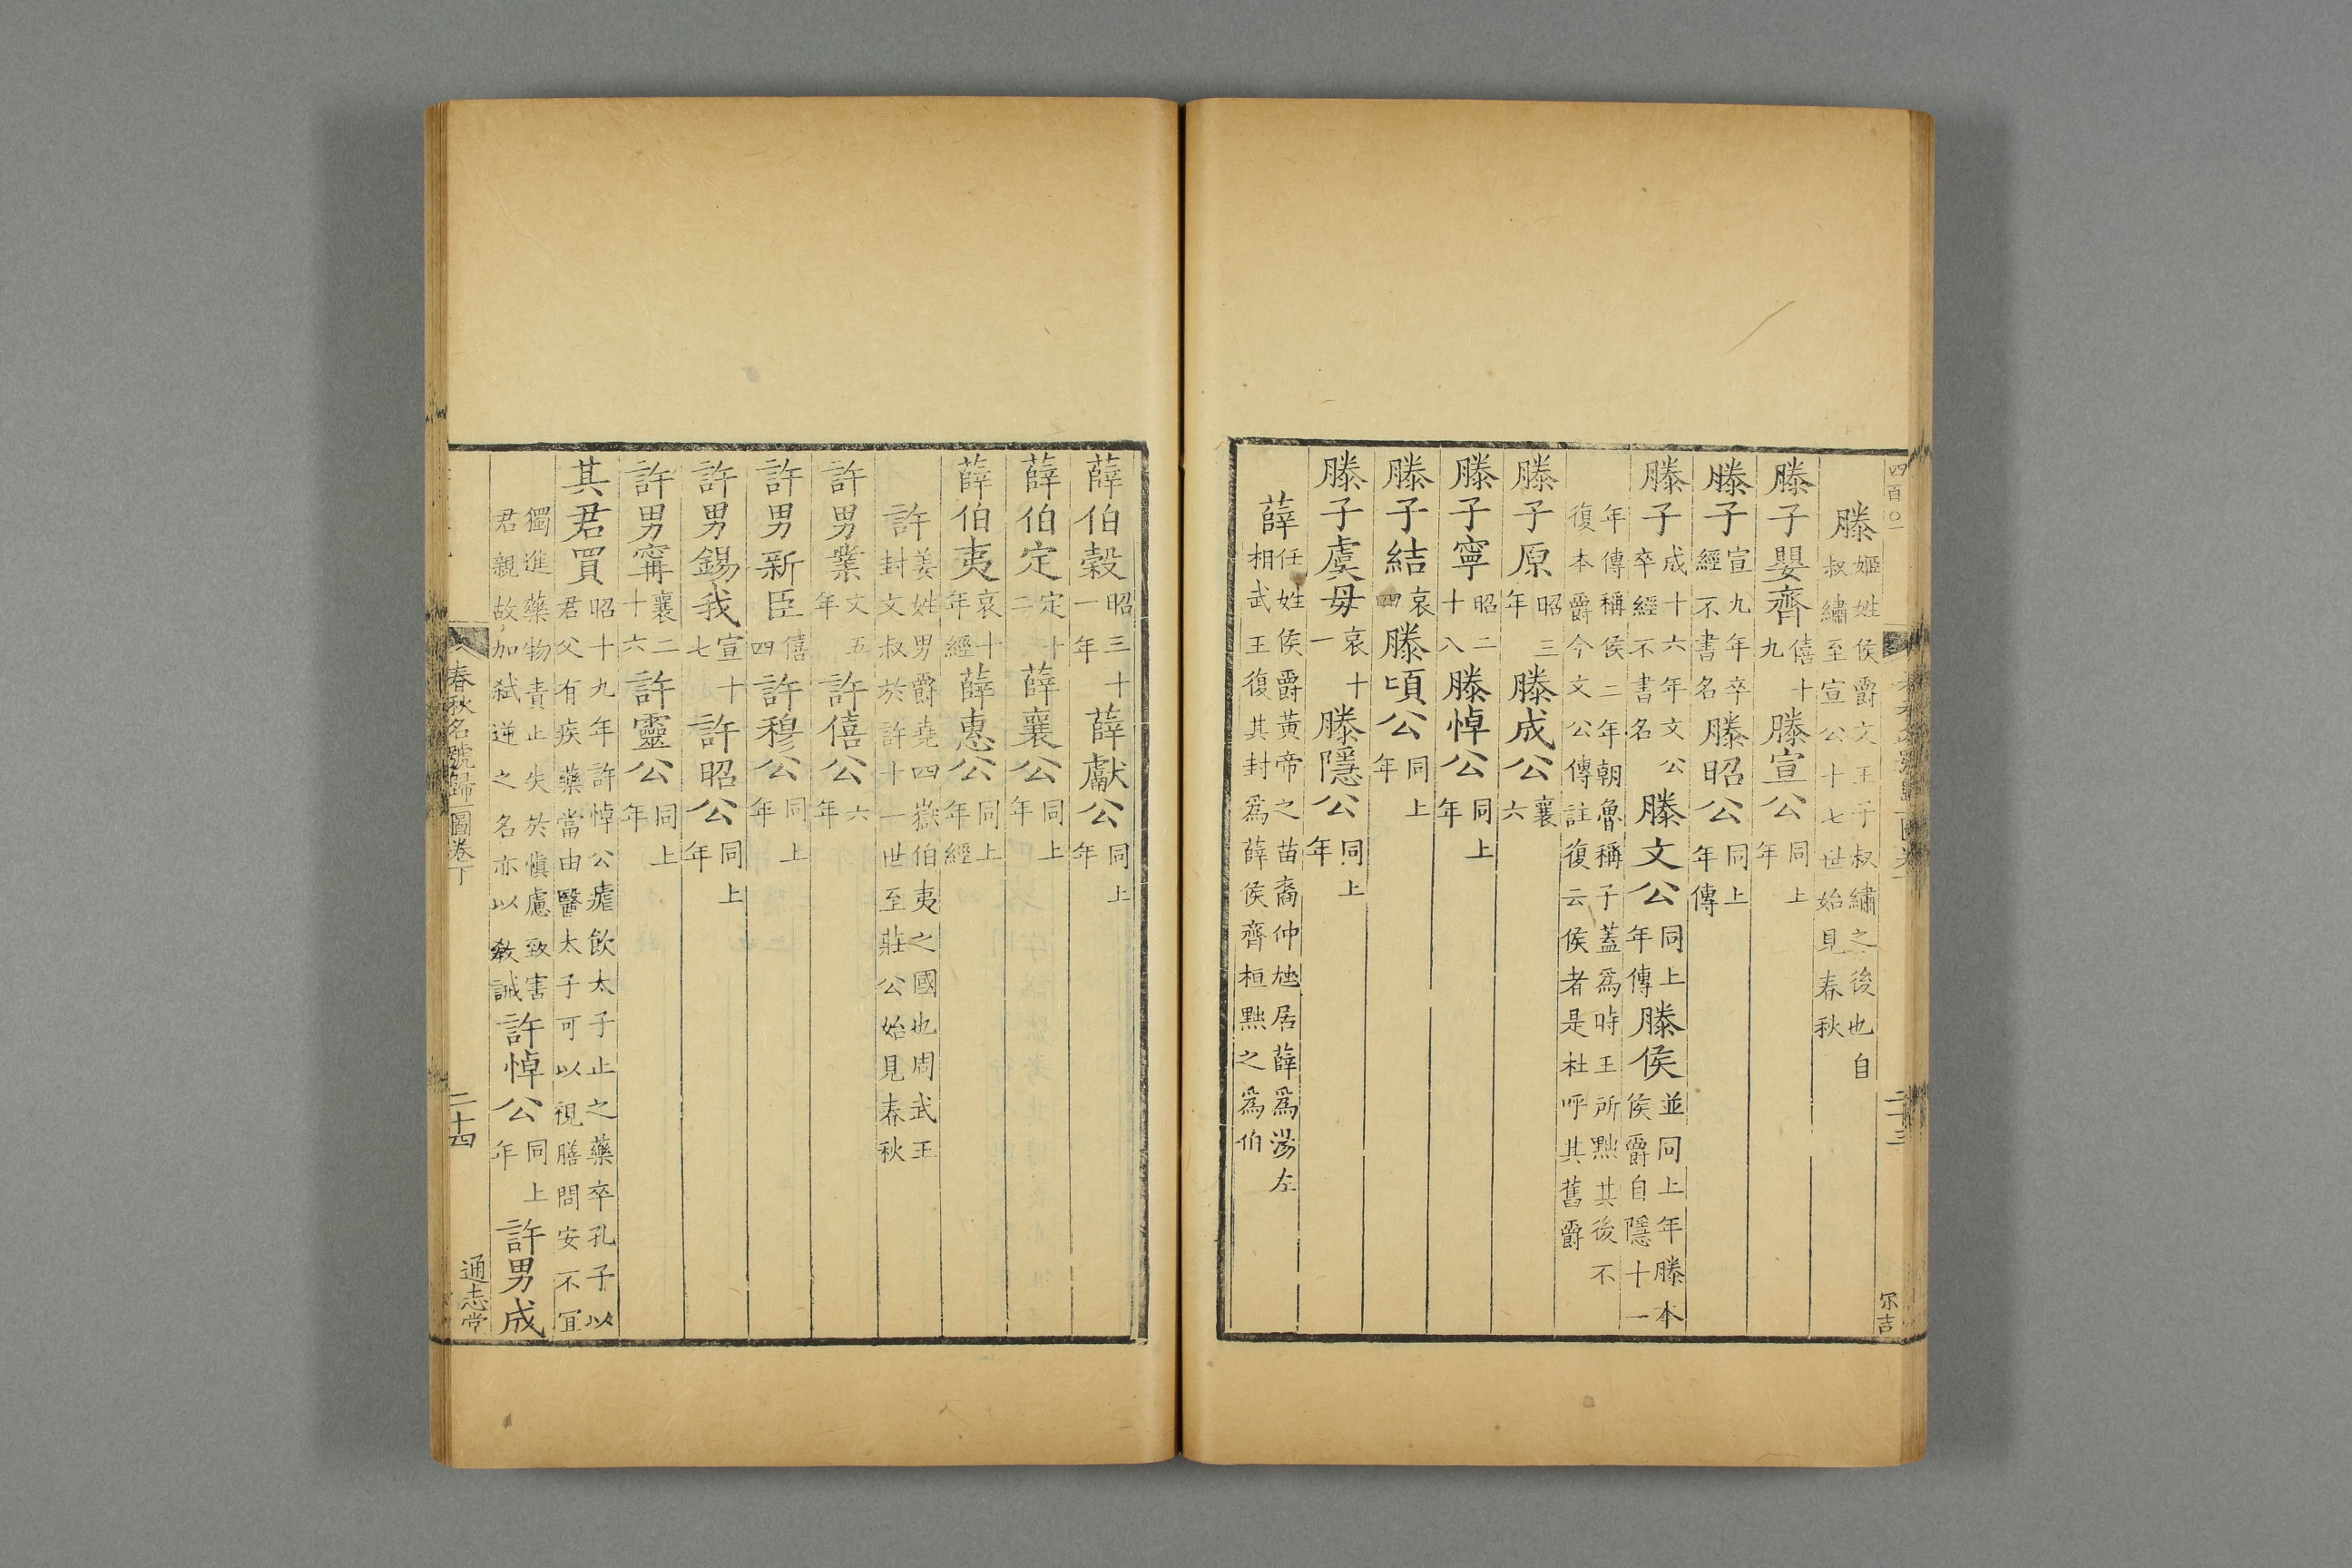 四百〇一
滕姬姓侯爵文王子叔繡之後也自叔繡至宣公十七世始見春秋
滕子嬰齊僖十九滕宣公同上年
滕子宣九年卒經不書名滕昭公同上年傳
滕子成十六年文公卒經不書名滕文公同上年傳滕侯並同上年滕本侯爵自隱十一
年傳稱侯二年朝魯稱子蓋爲時王所黜其後不復本爵今文公傳註復云侯者是杜呼其舊爵
滕子原昭三年滕成公襄六
滕子寧昭二十八滕悼公同上年
滕子結哀四滕頃公同上年
滕子虞毋哀十一滕隱公同上年
薛任姓侯爵黃帝之苗裔仲虺居薛爲湯左相武王復其封爲薛侯齊桓黜之爲伯
二十三
尔吉
薛伯穀昭三十一年薛獻公同上年
薛伯定定十二薛襄公同上年
薛伯夷哀十年經薛惠公同上年經
許姜姓男爵堯四嶽伯夷之國也周武王封文叔於許十一世至莊公始見春秋
許男業文五年許僖公六年
許男新臣僖四許穆公同上年
許男錫我宣十七許昭公同上年
許男甯襄二十六許靈公同上年
其君買昭十九年許悼公瘧飲太子止之藥卒孔子以君父有疾藥當由醫太子可以視膳問安不宜
獨進藥物責止失於慎慮致害君親故加弒逆之名亦以教誡許悼公同上年許男成
春秋名號歸一圖卷下
二十四
通志堂